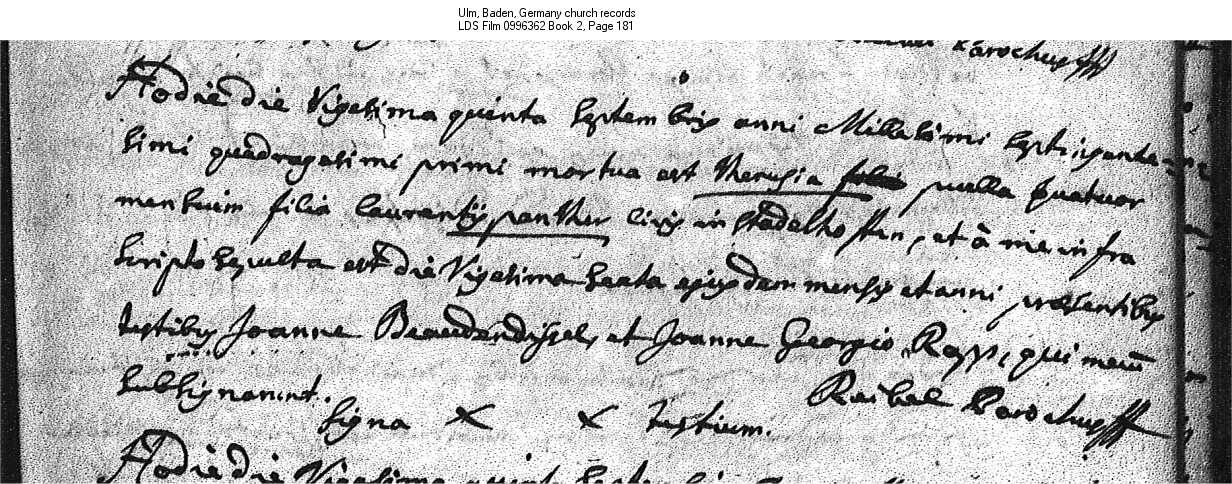 Ulm, Baden, Germany church records
LDS Film 0996362 Book 2, Page 181
Parochus
Hodie die Vigesima quinta septembris anni Millesimi septingente
simi quadragesimi primi mortua est theresia puella quatuor
mensium filia laurentij panther civis in stadelhoffen, et à me infra
scripto sepulta est die Vigesima sexta ejusdem mensis et anni præsentibus
testibus Joanne et Joanne Georgio Ross, qui mecum
subsignarunt.
Raibel Parochus
signa x x testium.
Hodie die Vigesima